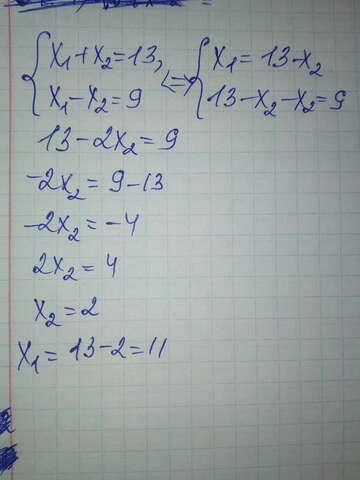 { x₁+x₂=13, <=> { x₁ = 13-x₂
x₁-x₂=9 13-x₂-x₂=9
13-2x₂=9
-2x₂=9-13
-2x₂=-4
2x₂=4
x₂=2
x₁= 13-2=11